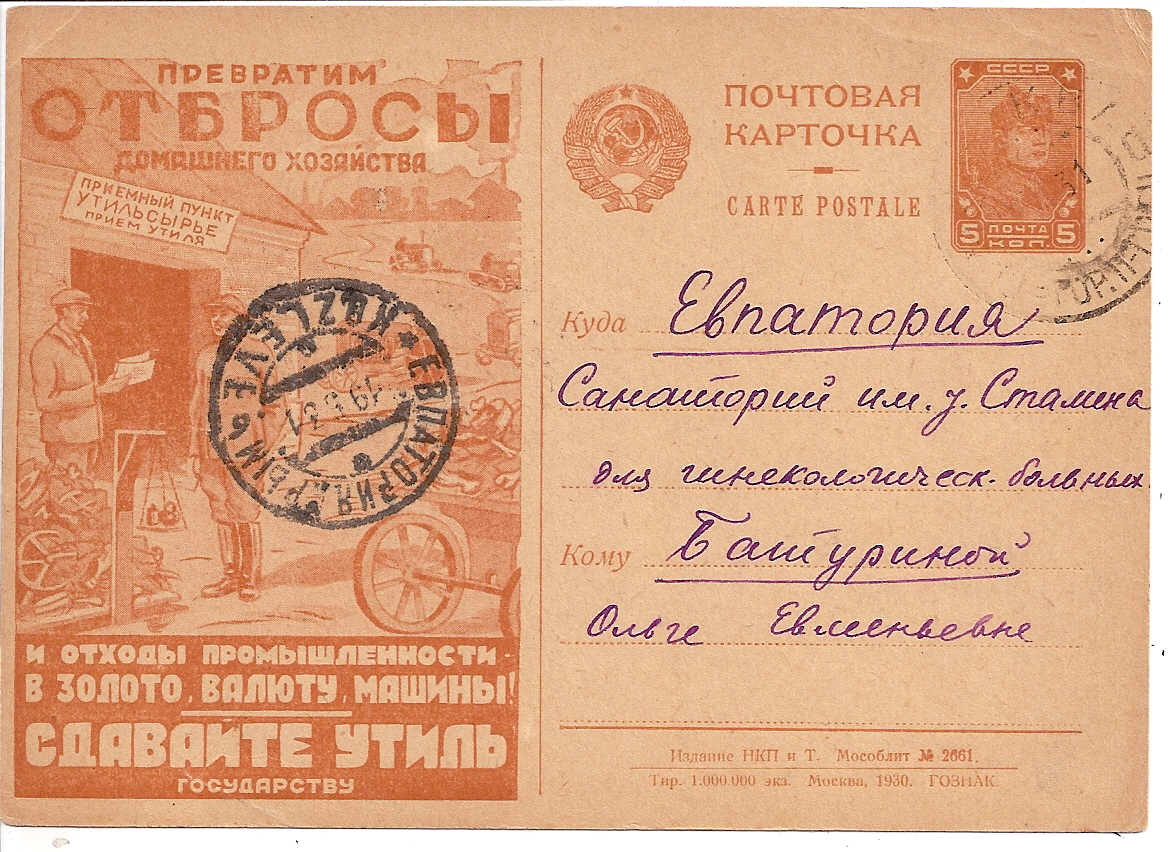 ПРЕВРАТИМ
ОТБРОСЫ
ДОМАШНЕГО ХОЗЯЙСТВА
ПРИЕМНЫЙ ПУНКТ
УТИЛЬСЫРЬЕ
ПРИЕМ УТИЛЯ
68
И ОТХОДЫ ПРОМЫШЛЕННОСТИ -
В ЗОЛОТО, ВАЛЮТУ, МАШИНЫ!
СДАВАЙТЕ УТИЛЬ
ГОСУДАРСТВУ
ЕВПАТОРИЯ КРЫМ
KEZLEVE
ПОЧТОВАЯ
КАРТОЧКА
CARTE POSTALE
СССР
5 ПОЧТА 5
КОП.
31
Куда Евпатория
Санаторий им. т. Сталина
для гинекологическ. больных
Кому Батуриной
Ольге Евменьевне
Издание НКП и Т. Мособлит № 2661.
Тир. 1.000.000 экз. Москва, 1930. ГОЗНАК.